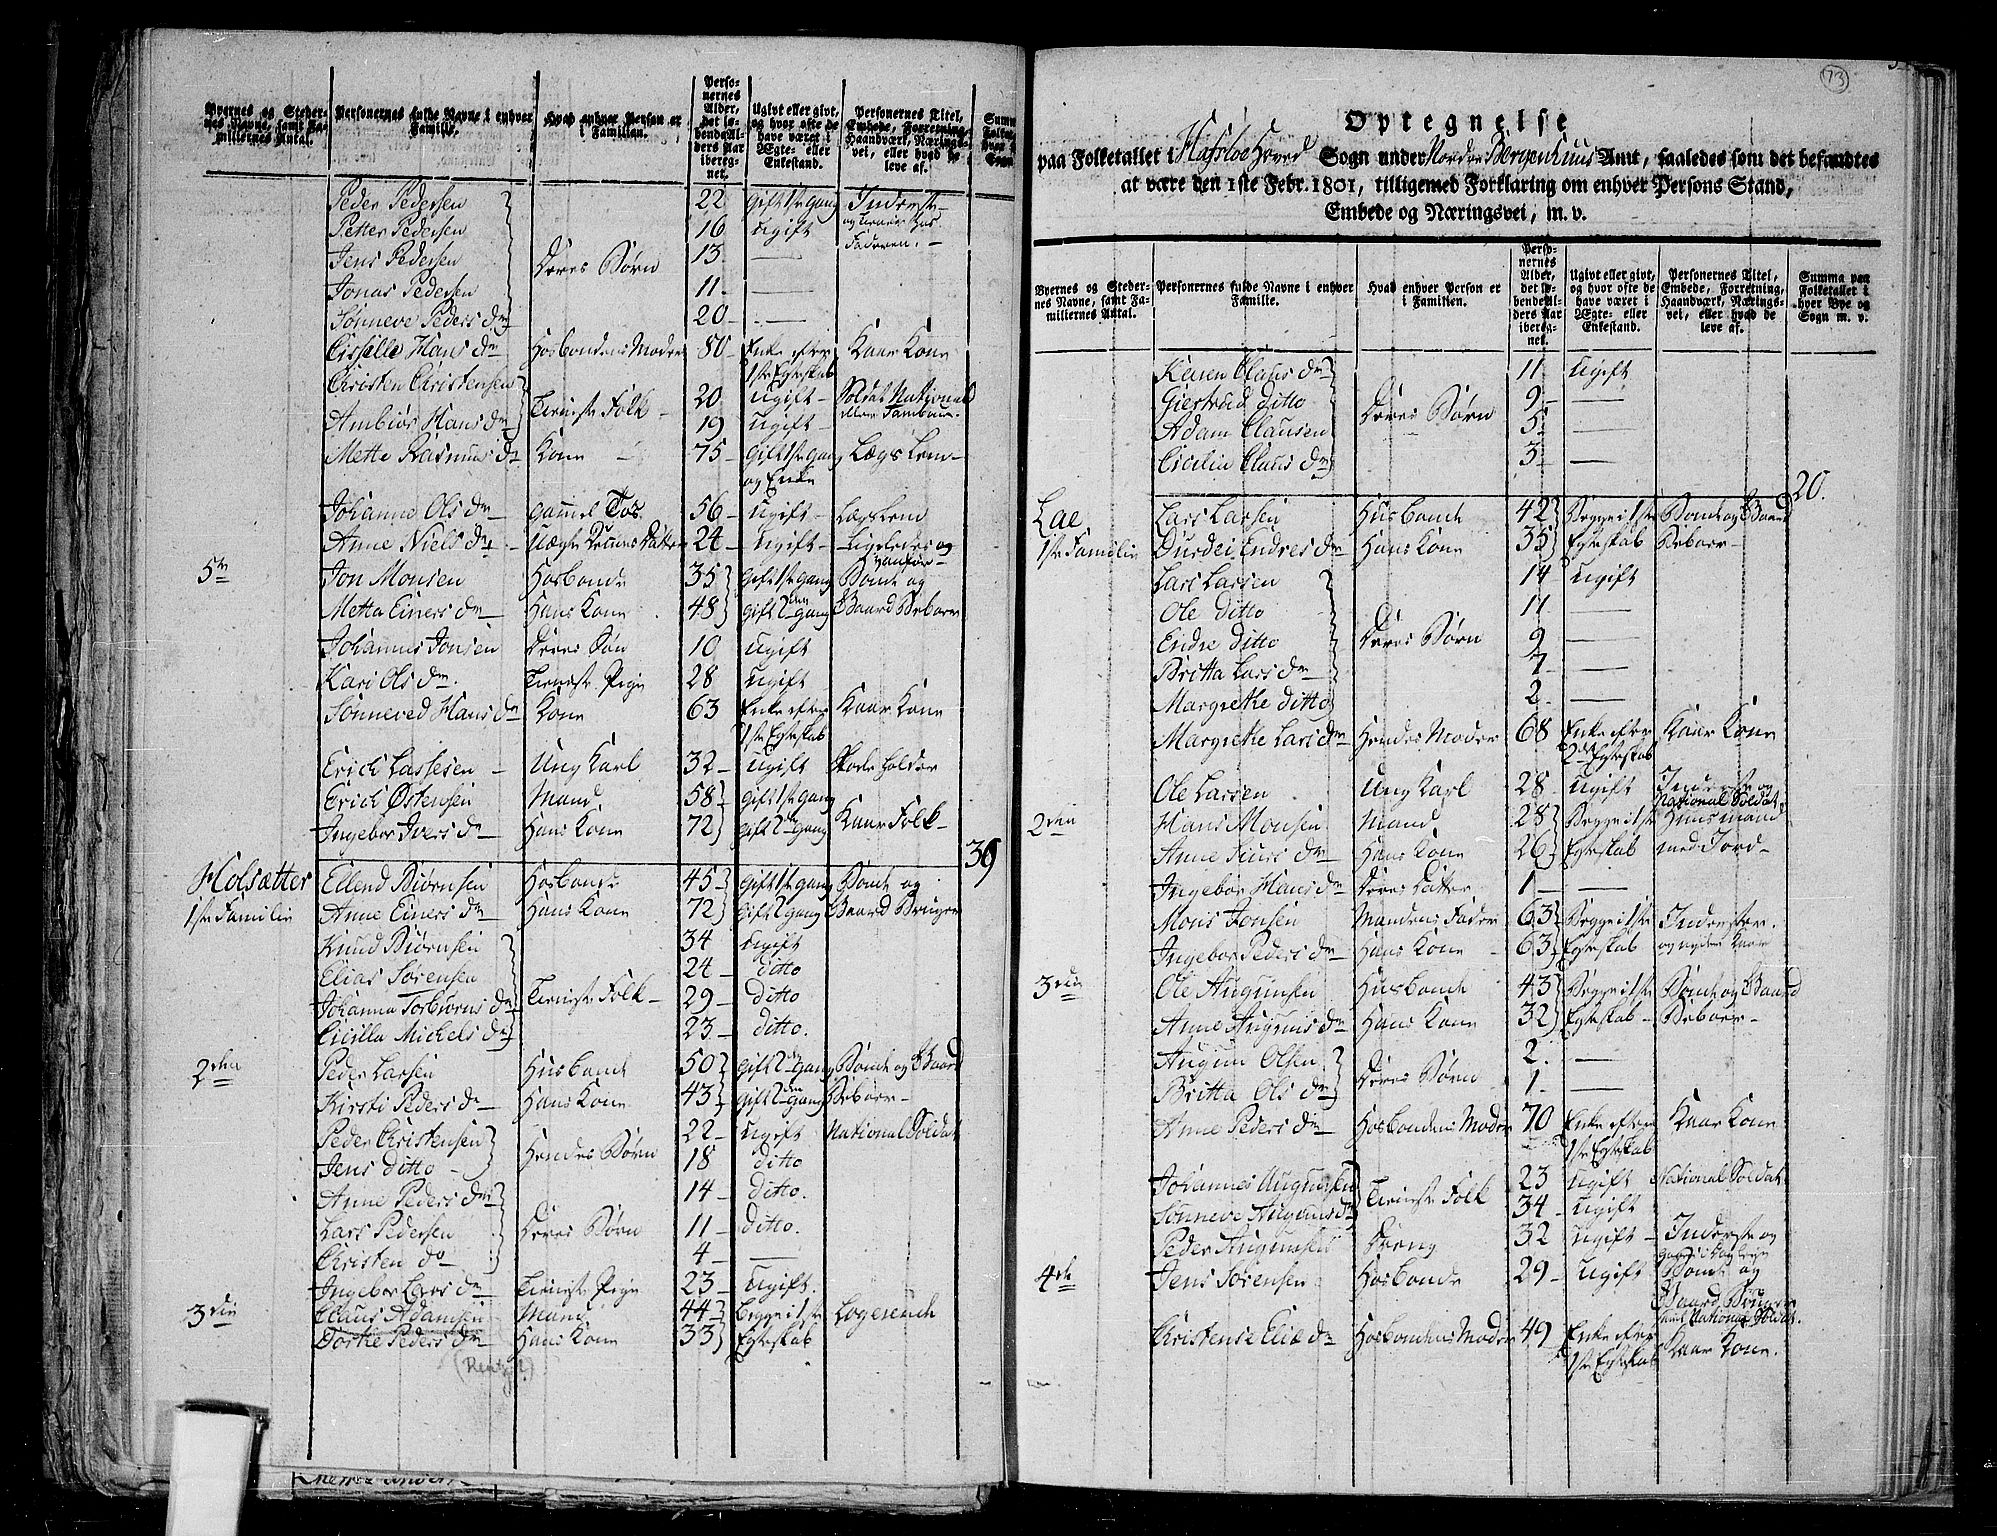 Byernes og Stedernes Navne, samt Familiernes Antal.
Personernes fulde Navne i enhver Familie.
Hvad enhver Person er i Familien.
Personernes Alder, det løbende Alders Aar iberegnet.
Ugivt eller givt, og hvor ofte de have været i Ægte- eller Enkestand.
Personernes Titel, Embede, Forretning, Haandværk, Næringsvei, eller hvad de leve af.
Peder Pedersen 22 gift 1ste gang Inderste
Petter Pedersen 16 ugift
Jens Pedersen Deres Børn 13 —
Jonas Pedersen 11 —
Sønneve Peders Dr 20 —
Cisselle Hans Dr Hosbondens Moder 80 Enke efter 1ste Egteskab Kaar Kone
Christen Christensen 20 ugift Soldat National
Ambiør Hans Dr Tieneste Folk 19 ugift
Mette Rasmus Dr Kone 75 Gift 1ste gang og Enke Lægs Lem
Johanne Ols Dr gammel Tøs 56 ugift Lægs Lem
Anne Niels Dr 24 ugift Ligeledes og
5te Jon Monsen Hosbonde 35 gift 1ste gang Bonde og
Metta Einers Dr Hans Kone 48 gift 2den gang Gaard Beboer
Johannes Jonsen Deres Søn 10 ugift
Kari Ols Dr Tieneste Pige 28 ugift
Sønneved Hans Dr Kone 63 Enke efter 1ste Egteskab Kaar Kone
Erich Lassesen Ung Karl 32 ugift Skoeholder
Erich Østensen Mand 58 gift 1ste gang
Ingebor Ivers Dr Hans Kone 72 gift 2den gang Kaar Folk
39
Holsætter Ellend Biørnsen Hosbonde 45 gift 1ste gang Bonde og
1ste Familie Anne Einers Dr Hans Kone 72 gift 2 gang Gaard Bruger
Knud Biørnsen 34 ugift
Elias Sørensen 24 ditto
Johanna Torbiørns Dr Tieneste Folk 29 ditto
Cicilla Michels Dr 23 ditto.
2den Peder Larsen Husbonde 50 gift 2den gang Bonde og Gaard
Kirsti Peders Dr Hans Kone 43 gift 2den gang Beboer
Peder Christensen 22 ugift National Soldat
Jens ditto Hendes Børn 18 ditto
Anne Peders Dr 14 ditto.
Lars Pedersen Deres Børn 11 ditto.
Christen do 4 —
Ingebor Lars Dr Tieneste Pige 23 ugift.
3die Claus Adamsen Mand 44 begge i 1ste Logerende
Dorthe Peders Dr Hans Kone 33 Egteskab
73
Optegnelse
paa Folketallet i Hafsloe Hoved Sogn under Nordre Bergenhuus Amt, saaledes som det befandtes
at være den 1ste Febr. 1801, tilligemed Forklaring om enhver Persons Stand,
Embede og Næringsvei, m. v.
Byernes og Stedernes Navne, samt Familiernes Antal.
Personernes fulde Navne i enhver Familie.
Hvad enhver Person er i Familien.
Personernes Alder, det løbende Alders Aar iberegnet.
Ugivt eller givt, og hvor ofte de have været i Ægte- eller Enkestand.
Personernes Titel, Embede, Forretning, Haandværk, Næringsvei, eller hvad de leve af.
Summa paa Folketallet i hver Bye og Sogn m. v.
Karen Claus Dr 11 ugift
Giertrud ditto 9 —
Adam Clausen Deres Børn 5 —
Cicilia Claus Dr 3 —
20.
Lae Lars Larsen Husbonde 42 Begge i 1ste Bonde og Gaard
1ste Familie Durdei Endres Dr Hans Kone 35 Egteskab Beboer
Lars Larsen 14 ugift
Ole ditto 11 —
Endre ditto Deres Børn 9 —
Britta Lars Dr 7 —
Margrethe ditto 2 —
Margrethe Lars Dr Hendes Moder 68 Enke efter 2det Egteskab Kaar Kone
Ole Larsen Ung Karl 28 ugift Inderste og National Soldat
2den Hans Monsen Mand 28 Begge i 1ste Huusmand
Anne Siurs Dr Hans Kone 26 Egteskab med Jord
Ingebor Hans Dr Deres Datter 1 —
Mons Jonsen Mandens Fader 63 Begge i 1ste Inderster
Ingebor Peders Dr Hans Kone 63 Egteskab og nyder Kaar
3die Ole Augunsen Husbonde 43 Begge i 1ste Bonde og Gaard
Anne Auguns Dr Hans Kone 32 Egteskab Beboer
Augun Olsen 2. —
Britta Ols Dr Deres Børn 1 —
Anne Peders Dr Hosbondens Moder 70 Enke efter 1ste Egteskab Kaar Kone
Johannes Augunsen 23 ugift National Soldat
Sønneve Auguns Dr Tieneste Folk 34 ugift
Peder Augunsen Dreng 32 ugift Inderste og
4de Jens Sørensen Hosbonde 29 ugift Bonde og Gaard Bruger samt National Soldat.
Christense Eliæ Dr Hosbondens Moder 49 Enke efter 1ste Egteskab Kaar Kone.